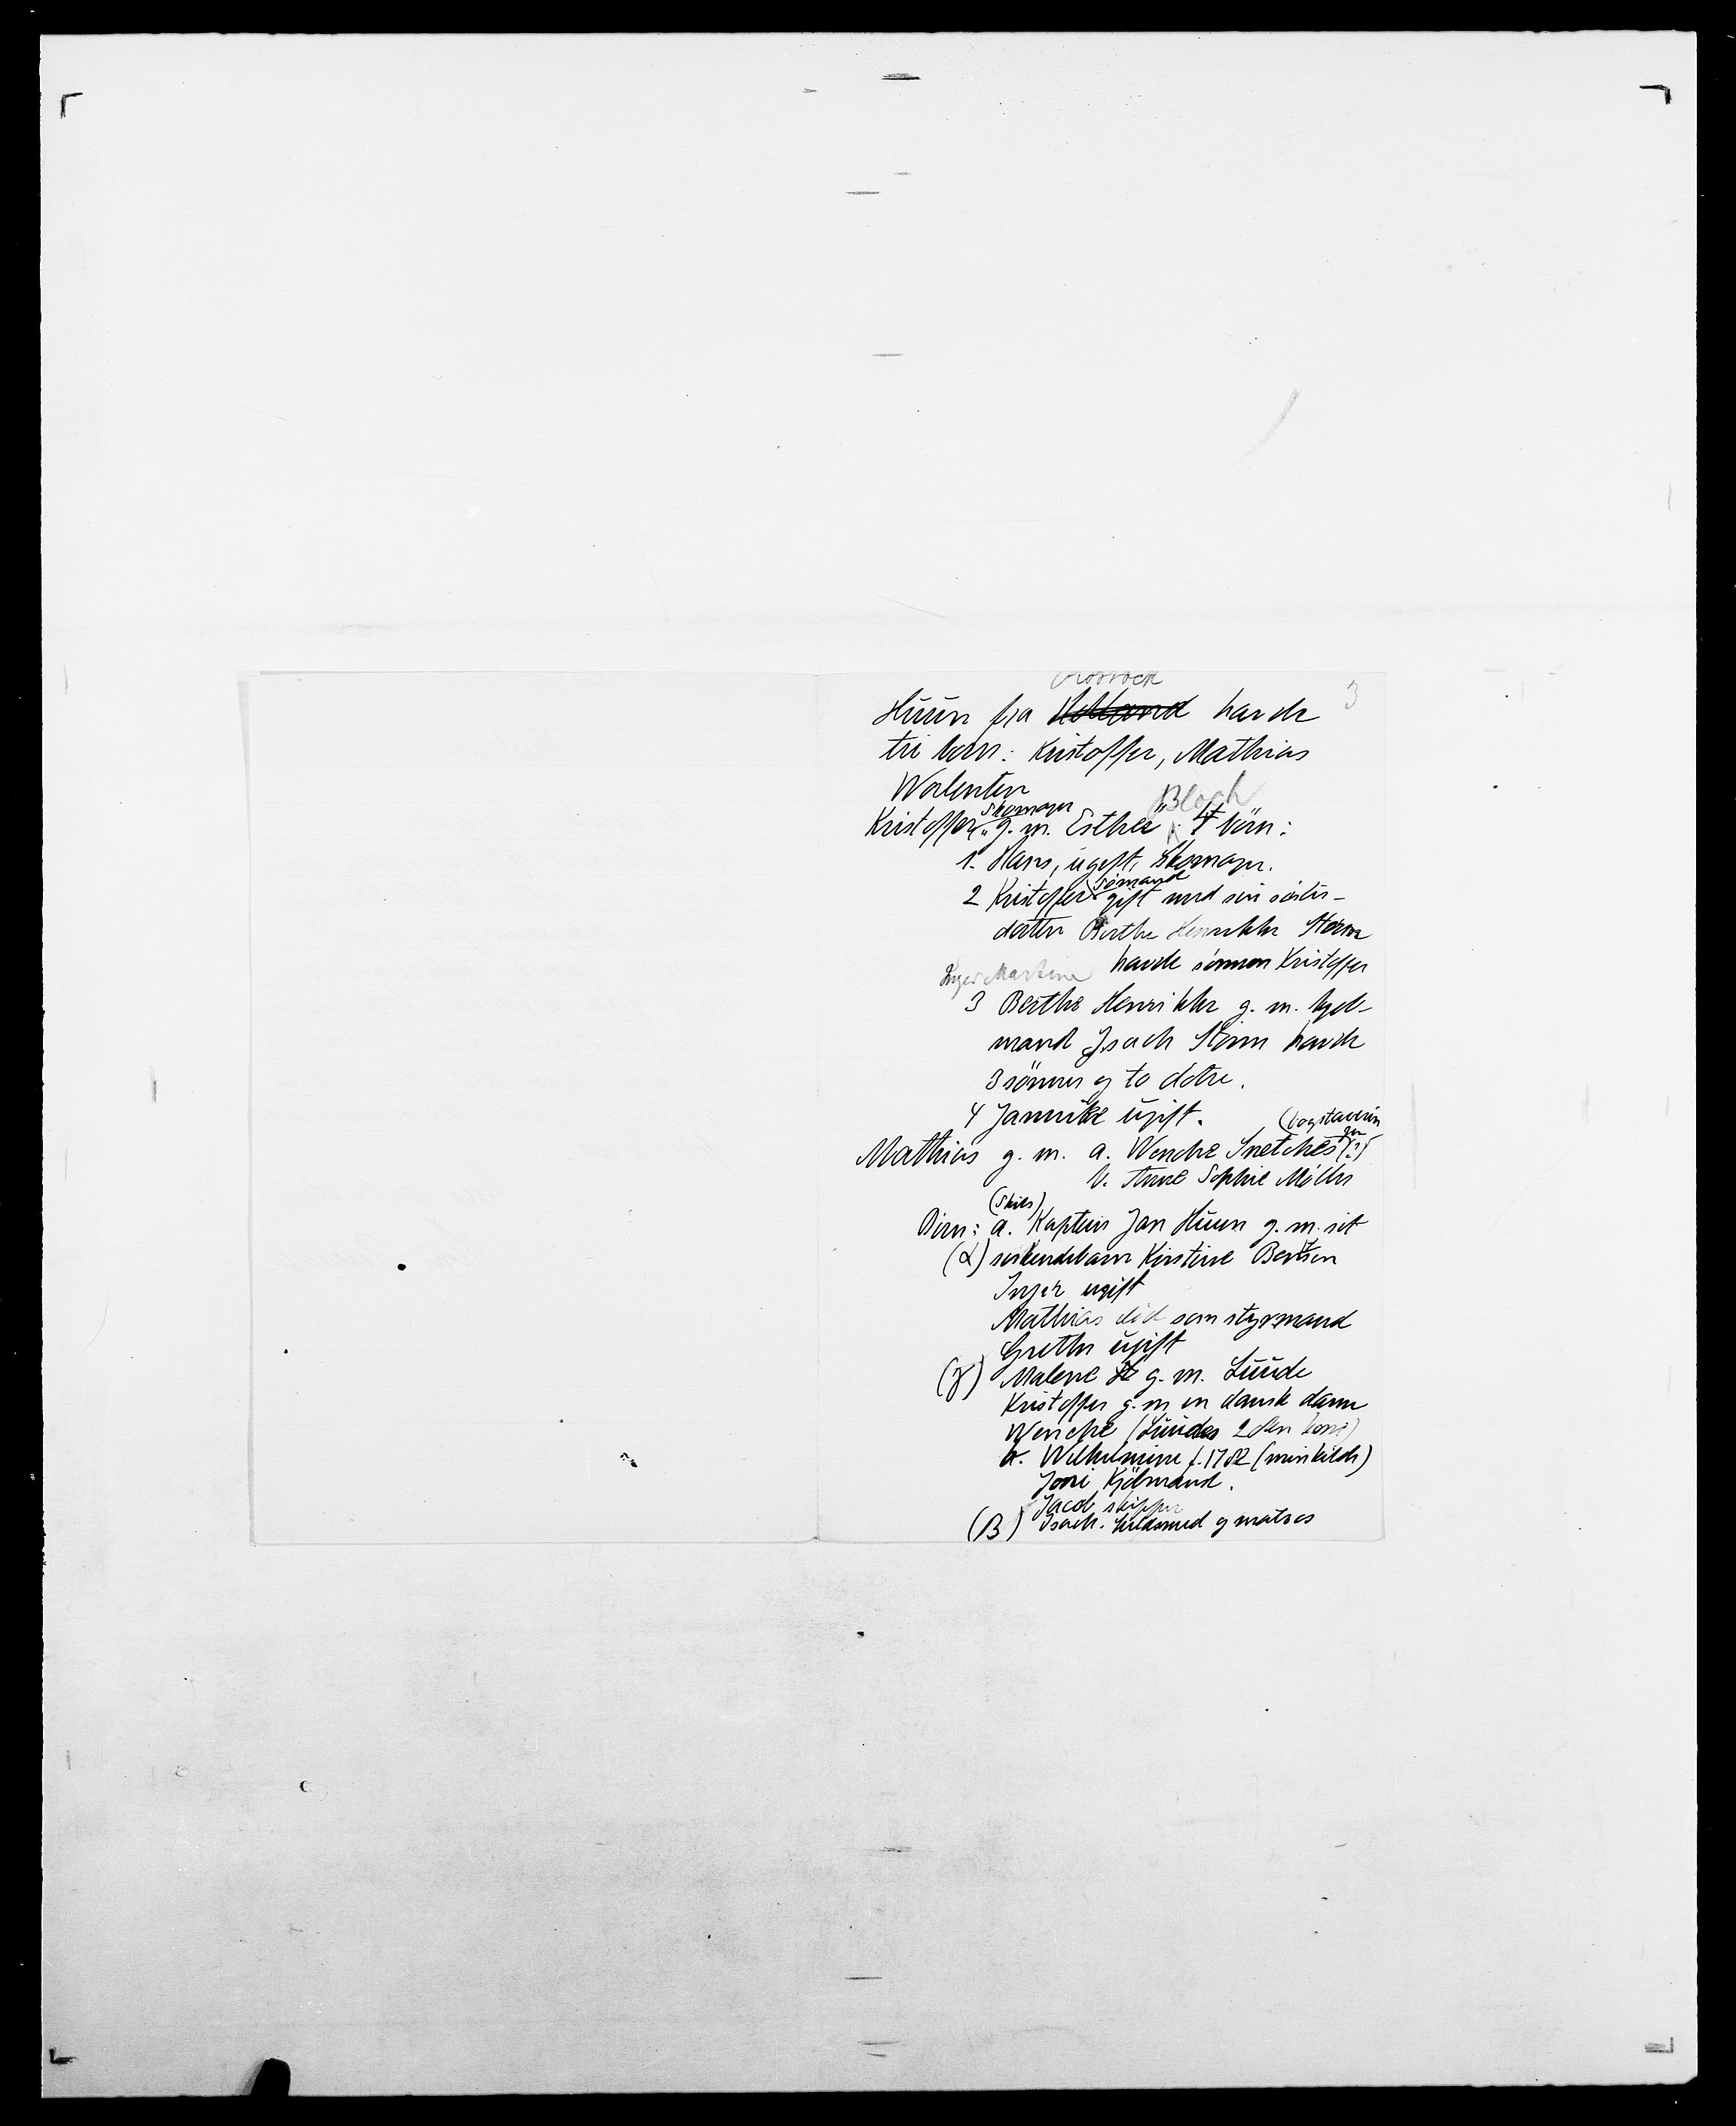 Rostock
3
Huun fra Holland havde
tre børn: Kristoffer, Mathias
Valentin
Bloch
Skomager
Kristoffer g. m. Esther 4 børn:
1. Hans, ugift, Skomager.
Sømand
2 Kristoffer gift med sin søster-
datter Berthe Henrikke Størm
havde sønnen Kristoffer
Inger Martine
3 Berthe Henrikke g. m.
mand Isach Størm havde
3 sønner og to døtre.
4 Jannike ugift.
Mathias g. m. a. Wenche Snetches (?)
b. Anne Sophie Møller
Børn: a. Kaptein Jan Huun g. m. sit
(α) søskendebarn Kirstine Bentsen
Inger ugift
Mathias død som styrmand
Grethe ugift
(γ) Malene g. m. Luude
Kristoffer g. m en dansk dame
Wenche (Luudes 2den kone)
b. Wilhelmine f. 1782 (min kilde)
Joni Kjøbmand.
Jacob skipper
(β) Isach. guldsmed og matros